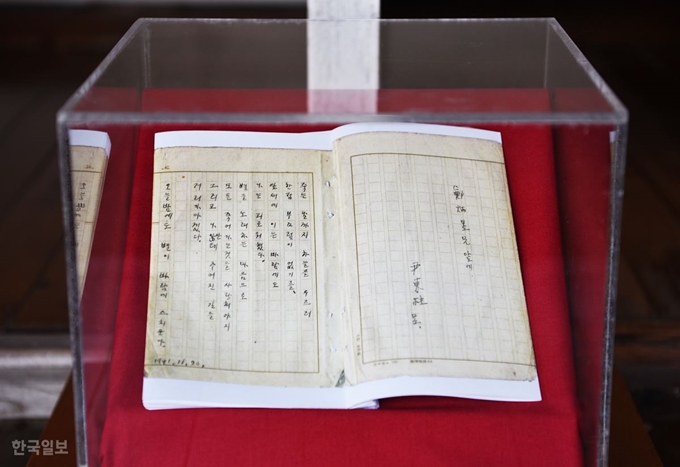 鄭炳昱兄앞에
尹東柱 呈.
죽는 날까지 하늘을 우르러
한점 부끄럼이 없기를,
잎새에 이는 바람에도
나는 괴로워했다.
별을 노래하는 마음으로
모든 죽어가는것을 사랑해야지
그리고 나안테 주어진 길을
거러가야겠다.
오늘밤에도 별이 바람에 스치운다.
1941.11.20.
한국일보